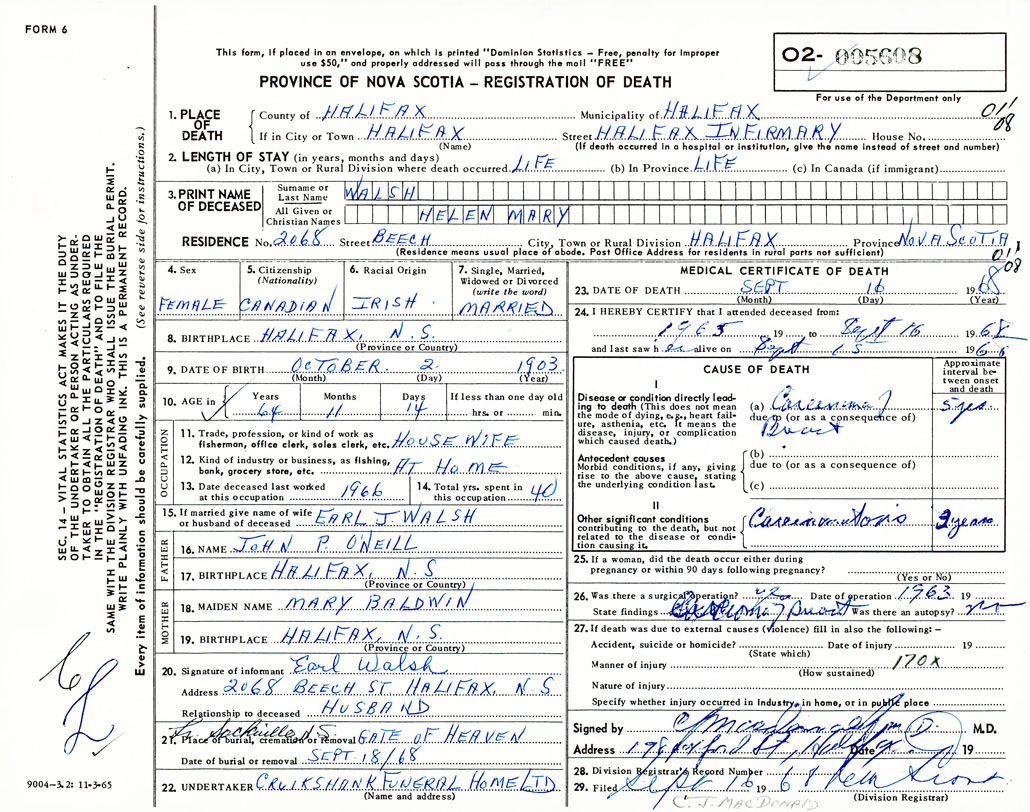 FORM 6
This form, if placed in an envelope, on which is printed "Dominion Statistics – Free, penalty for improper
use $50," and properly addressed will pass through the mail "FREE"
O2- 005608
For use of the Department only
PROVINCE OF NOVA SCOTIA – REGISTRATION OF DEATH
011/08
1. PLACE OF DEATH County of HALIFAX Municipality of HALIFAX
If in City or Town HALIFAX Street HALIFAX INFIRMARY House No.
(Name) (If death occurred in a hospital or institution, give the name instead of street and number)
2. LENGTH OF STAY (in years, months and days)
(a) In City, Town or Rural Division where death occurred LIFE (b) In Province LIFE (c) In Canada (if immigrant)
3. PRINT NAME OF DECEASED Surname or Last Name WALSH
All Given or Christian Names HELEN MARY
RESIDENCE No. 2068 Street BEECH City, Town or Rural Division HALIFAX Province NOVA SCOTIA
(Residence means usual place of abode. Post Office Address for residents in rural parts not sufficient)
011/08
4. Sex FEMALE
5. Citizenship (Nationality) CANADIAN
6. Racial Origin IRISH
7. Single, Married, Widowed or Divorced (write the word) MARRIED
8. BIRTHPLACE HALIFAX, N.S.
(Province or Country)
9. DATE OF BIRTH OCTOBER 2 1903
(Month) (Day) (Year)
10. AGE in Years 64 Months 11 Days 14 If less than one day old hrs. or min.
OCCUPATION
11. Trade, profession, or kind of work as fisherman, office clerk, sales clerk, etc. HOUSE WIFE
12. Kind of industry or business, as fishing, bank, grocery store, etc. AT HOME
13. Date deceased last worked at this occupation 1966
14. Total yrs. spent in this occupation 40
15. If married give name of wife or husband of deceased EARL J. WALSH
FATHER
16. NAME JOHN P. O'NEILL
17. BIRTHPLACE HALIFAX, N.S.
(Province or Country)
MOTHER
18. MAIDEN NAME MARY BALDWIN
19. BIRTHPLACE HALIFAX, N.S.
(Province or Country)
20. Signature of informant Earl Walsh
Address 2068 BEECH ST. HALIFAX, N S
Relationship to deceased HUSBAND
Sackville N.S.
21. Place of burial, cremation or removal GATE OF HEAVEN
Date of burial or removal SEPT. 18/68
22. UNDERTAKER CRUIKSHANK FUNERAL HOME LTD.
(Name and address)
MEDICAL CERTIFICATE OF DEATH
23. DATE OF DEATH SEPT 16 1968
(Month) (Day) (Year)
24. I HEREBY CERTIFY that I attended deceased from:
1965 19 to Sept 16 1968
and last saw her alive on Sept 15 196
CAUSE OF DEATH
Approximate interval between onset and death
I
Disease or condition directly leading to death (This does not mean the mode of dying, e.g., heart failure, asthenia, etc. It means the disease, injury, or complication which caused death.)
(a) Carcinoma of 5 yrs.
due to (or as a consequence of)
Breast
Antecedent causes
Morbid conditions, if any, giving rise to the above cause, stating the underlying condition last.
(b)
due to (or as a consequence of)
(c)
II
Other significant conditions contributing to the death, but not related to the disease or condition causing it.
Carcinomatosis 2 years
25. If a woman, did the death occur either during pregnancy or within 90 days following pregnancy?
(Yes or No)
26. Was there a surgical operation? yes Date of operation 1963 19
State findings Carcinoma of Breast Was there an autopsy? no
27. If death was due to external causes (violence) fill in also the following: –
Accident, suicide or homicide? Date of injury 19
(State which)
Manner of injury 170X
(How sustained)
Nature of injury
Specify whether injury occurred in Industry, in home, or in public place
Signed by M.D.
Address Date 19
28. Division Registrar's Record Number
29. Filed Sept 16 196
(Division Registrar)
C. J. MACDONALD
SEC. 14 – VITAL STATISTICS ACT MAKES IT THE DUTY
OF THE UNDERTAKER OR PERSON ACTING AS UNDER-
TAKER TO OBTAIN THE PARTICULARS REQUIRED
IN THE "REGISTRATION OF DEATH" AND TO FILE THE
SAME WITH THE DIVISION REGISTRAR WHO SHALL ISSUE THE BURIAL PERMIT.
WRITE PLAINLY WITH UNFADING INK. THIS IS A PERMANENT RECORD.
Every item of information should be carefully supplied. (See reverse side for instructions.)
9004-3.2: 11-3-65